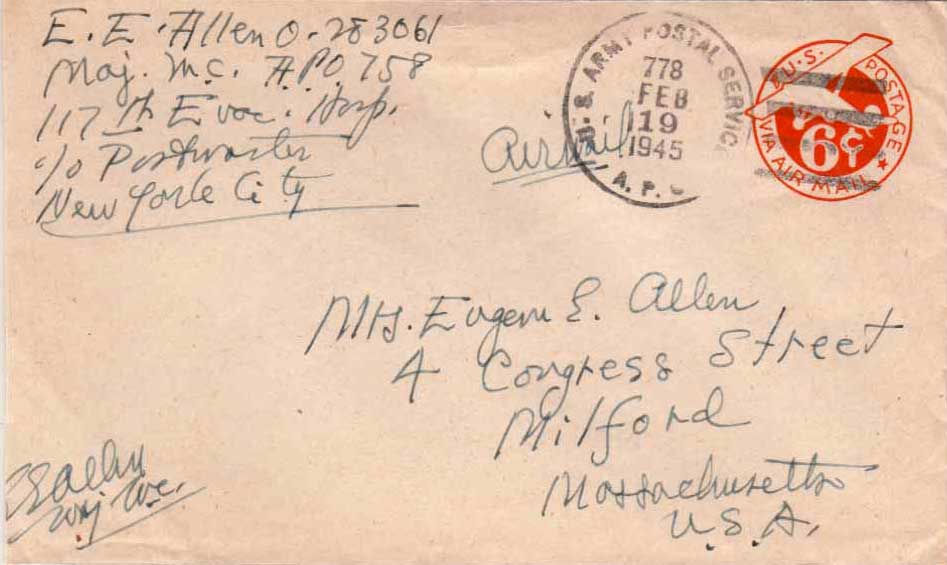 E. E. Allen O-283061
Maj. M.C. A.P.O. 758
117th Evac. Hosp.
c/o Postmaster
New York City
Airmail
U.S. ARMY POSTAL SERVICE
778
FEB
19
1945
A. P.
U.S. POSTAGE
6¢
VIA AIR MAIL
Mrs. Eugene E. Allen
4 Congress Street
Milford
Massachusetts
U.S.A.
EEAllen
Maj MC.